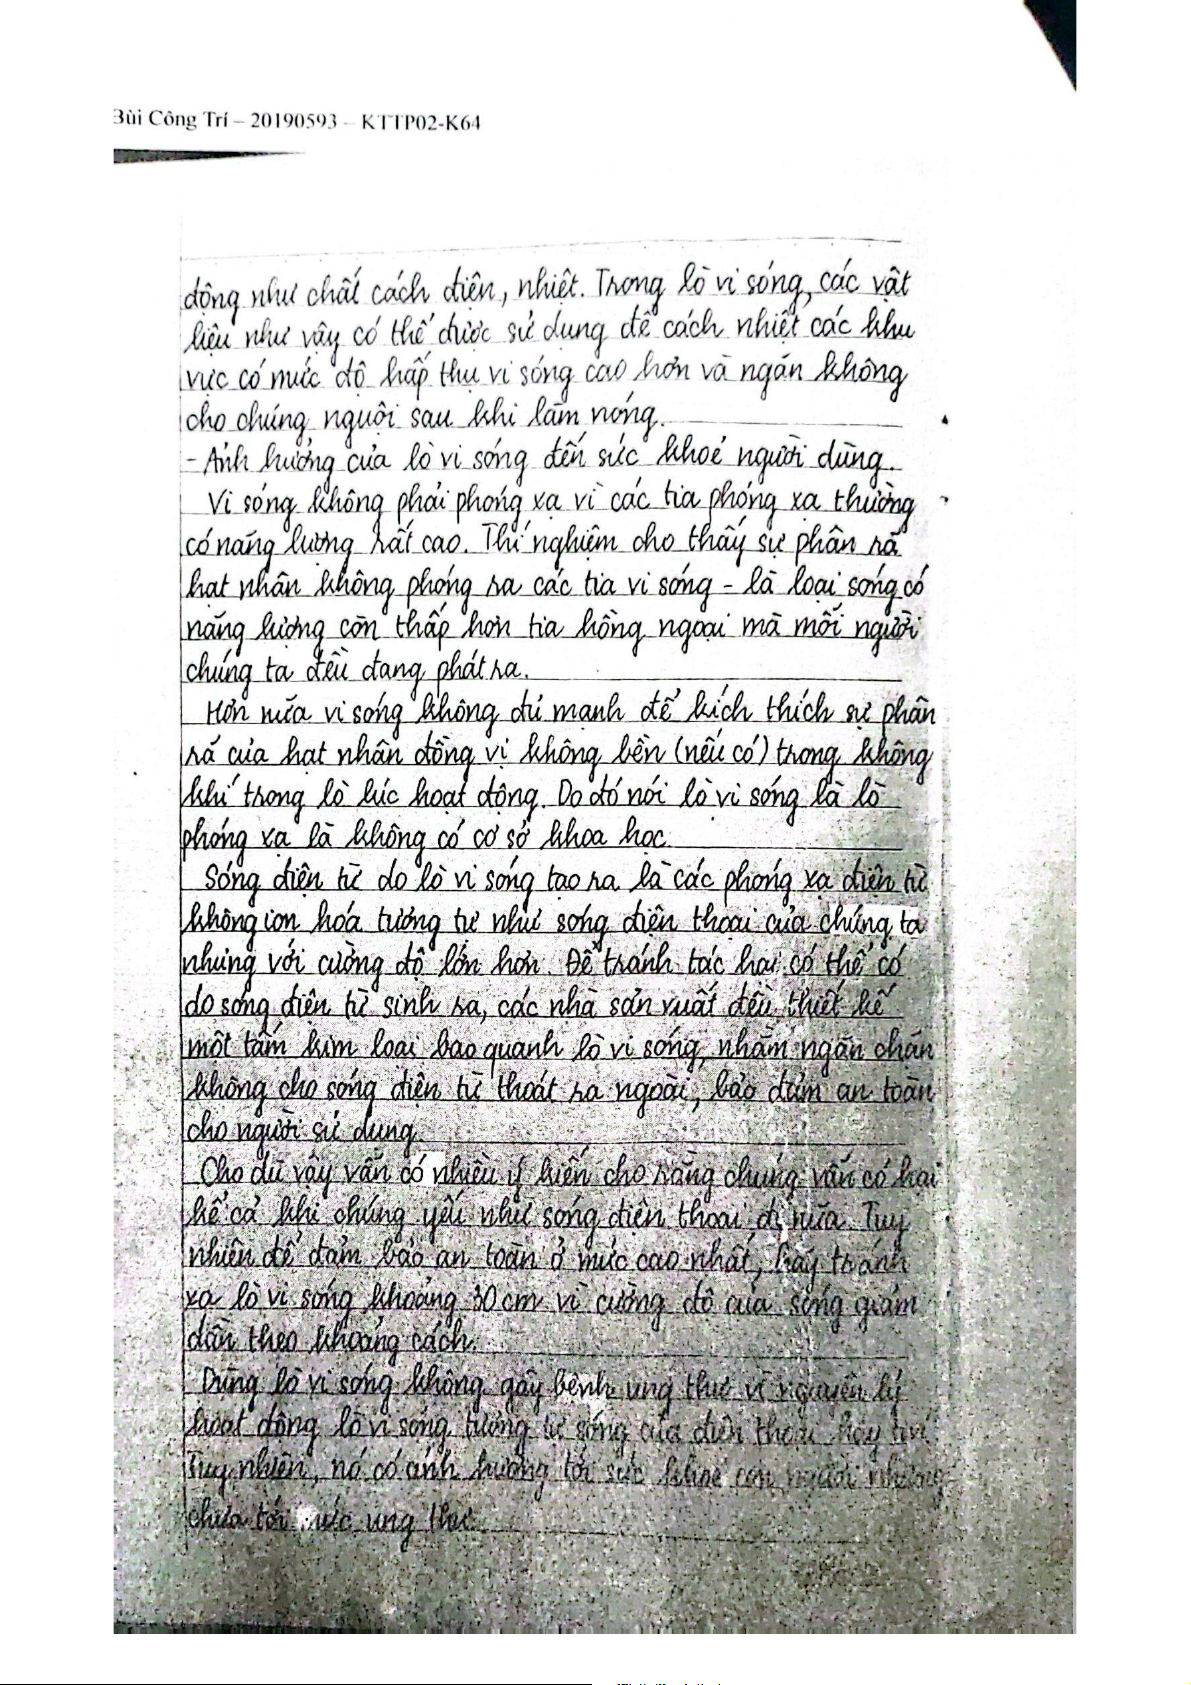 Bùi Công Trí – 20190593 – KTTP02-K64
động như chất cách điện, nhiệt. Trong lò vi sóng, các vật
liệu như vậy có thể được sử dụng để cách nhiệt các khu
vực có mức độ hấp thụ vi sóng cao hơn và ngăn không
cho chúng nguội sau khi làm nóng.
- Ảnh hưởng của lò vi sóng đến sức khoẻ người dùng.
Vi sóng không phải phóng xạ vì các tia phóng xạ thường
có năng lượng rất cao. Thí nghiệm cho thấy sự phân rã
hạt nhân không phóng ra các tia vi sóng - là loại sóng có
năng lượng còn thấp hơn tia hồng ngoại mà mỗi người
chúng ta đều đang phát ra.
Hơn nữa vi sóng không đủ mạnh để kích thích sự phân
rã của hạt nhân đồng vị không bền (nếu có) trong không
khí trong lò lúc hoạt động. Do đó nói lò vi sóng là lò
phóng xạ là không có cơ sở khoa học.
Sóng điện từ do lò vi sóng tạo ra là các phóng xạ điện từ
không ion hóa tương tự như sóng điện thoại của chúng ta
nhưng với cường độ lớn hơn. Để tránh tác hại có thể có
do sóng điện từ sinh ra, các nhà sản xuất đều thiết kế
một tấm kim loại bao quanh lò vi sóng, nhằm ngăn chặn
không cho sóng điện từ thoát ra ngoài, bảo đảm an toàn
cho người sử dụng.
Cho dù vậy vẫn có nhiều ý kiến cho rằng chúng vẫn có hại
kể cả khi chúng yếu như sóng điện thoại đi nữa. Tuy
nhiên để đảm bảo an toàn ở mức cao nhất, hãy tránh
xa lò vi sóng khoảng 30cm vì cường độ của sóng giảm
dần theo khoảng cách.
Dùng lò vi sóng không gây bệnh ung thư vì nguyên lý
hoạt động lò vi sóng tương tự sóng của điện thoại hay tivi.
Tuy nhiên, nó có ảnh hưởng tới sức khoẻ con người nhưng
chưa tới mức ung thư.